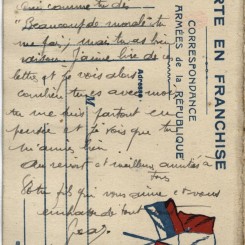 comme tu dis
"Beaucoup de morale" tu
me fais, mais tu as bien
raison. J'aime lire de
lettre, et je vois alors
combien tu es avec moi
tu me suis partout en
pensée et je vois que tu
m'aime bien.
Au revoir et meilleurs amitiés à
tous
Votre fils qui vous aime et vous
embrasse de tout
CARTE EN FRANCHISE
CORRESPONDANCE
ARMÉES de la RÉPUBLIQUE
Adresse
M